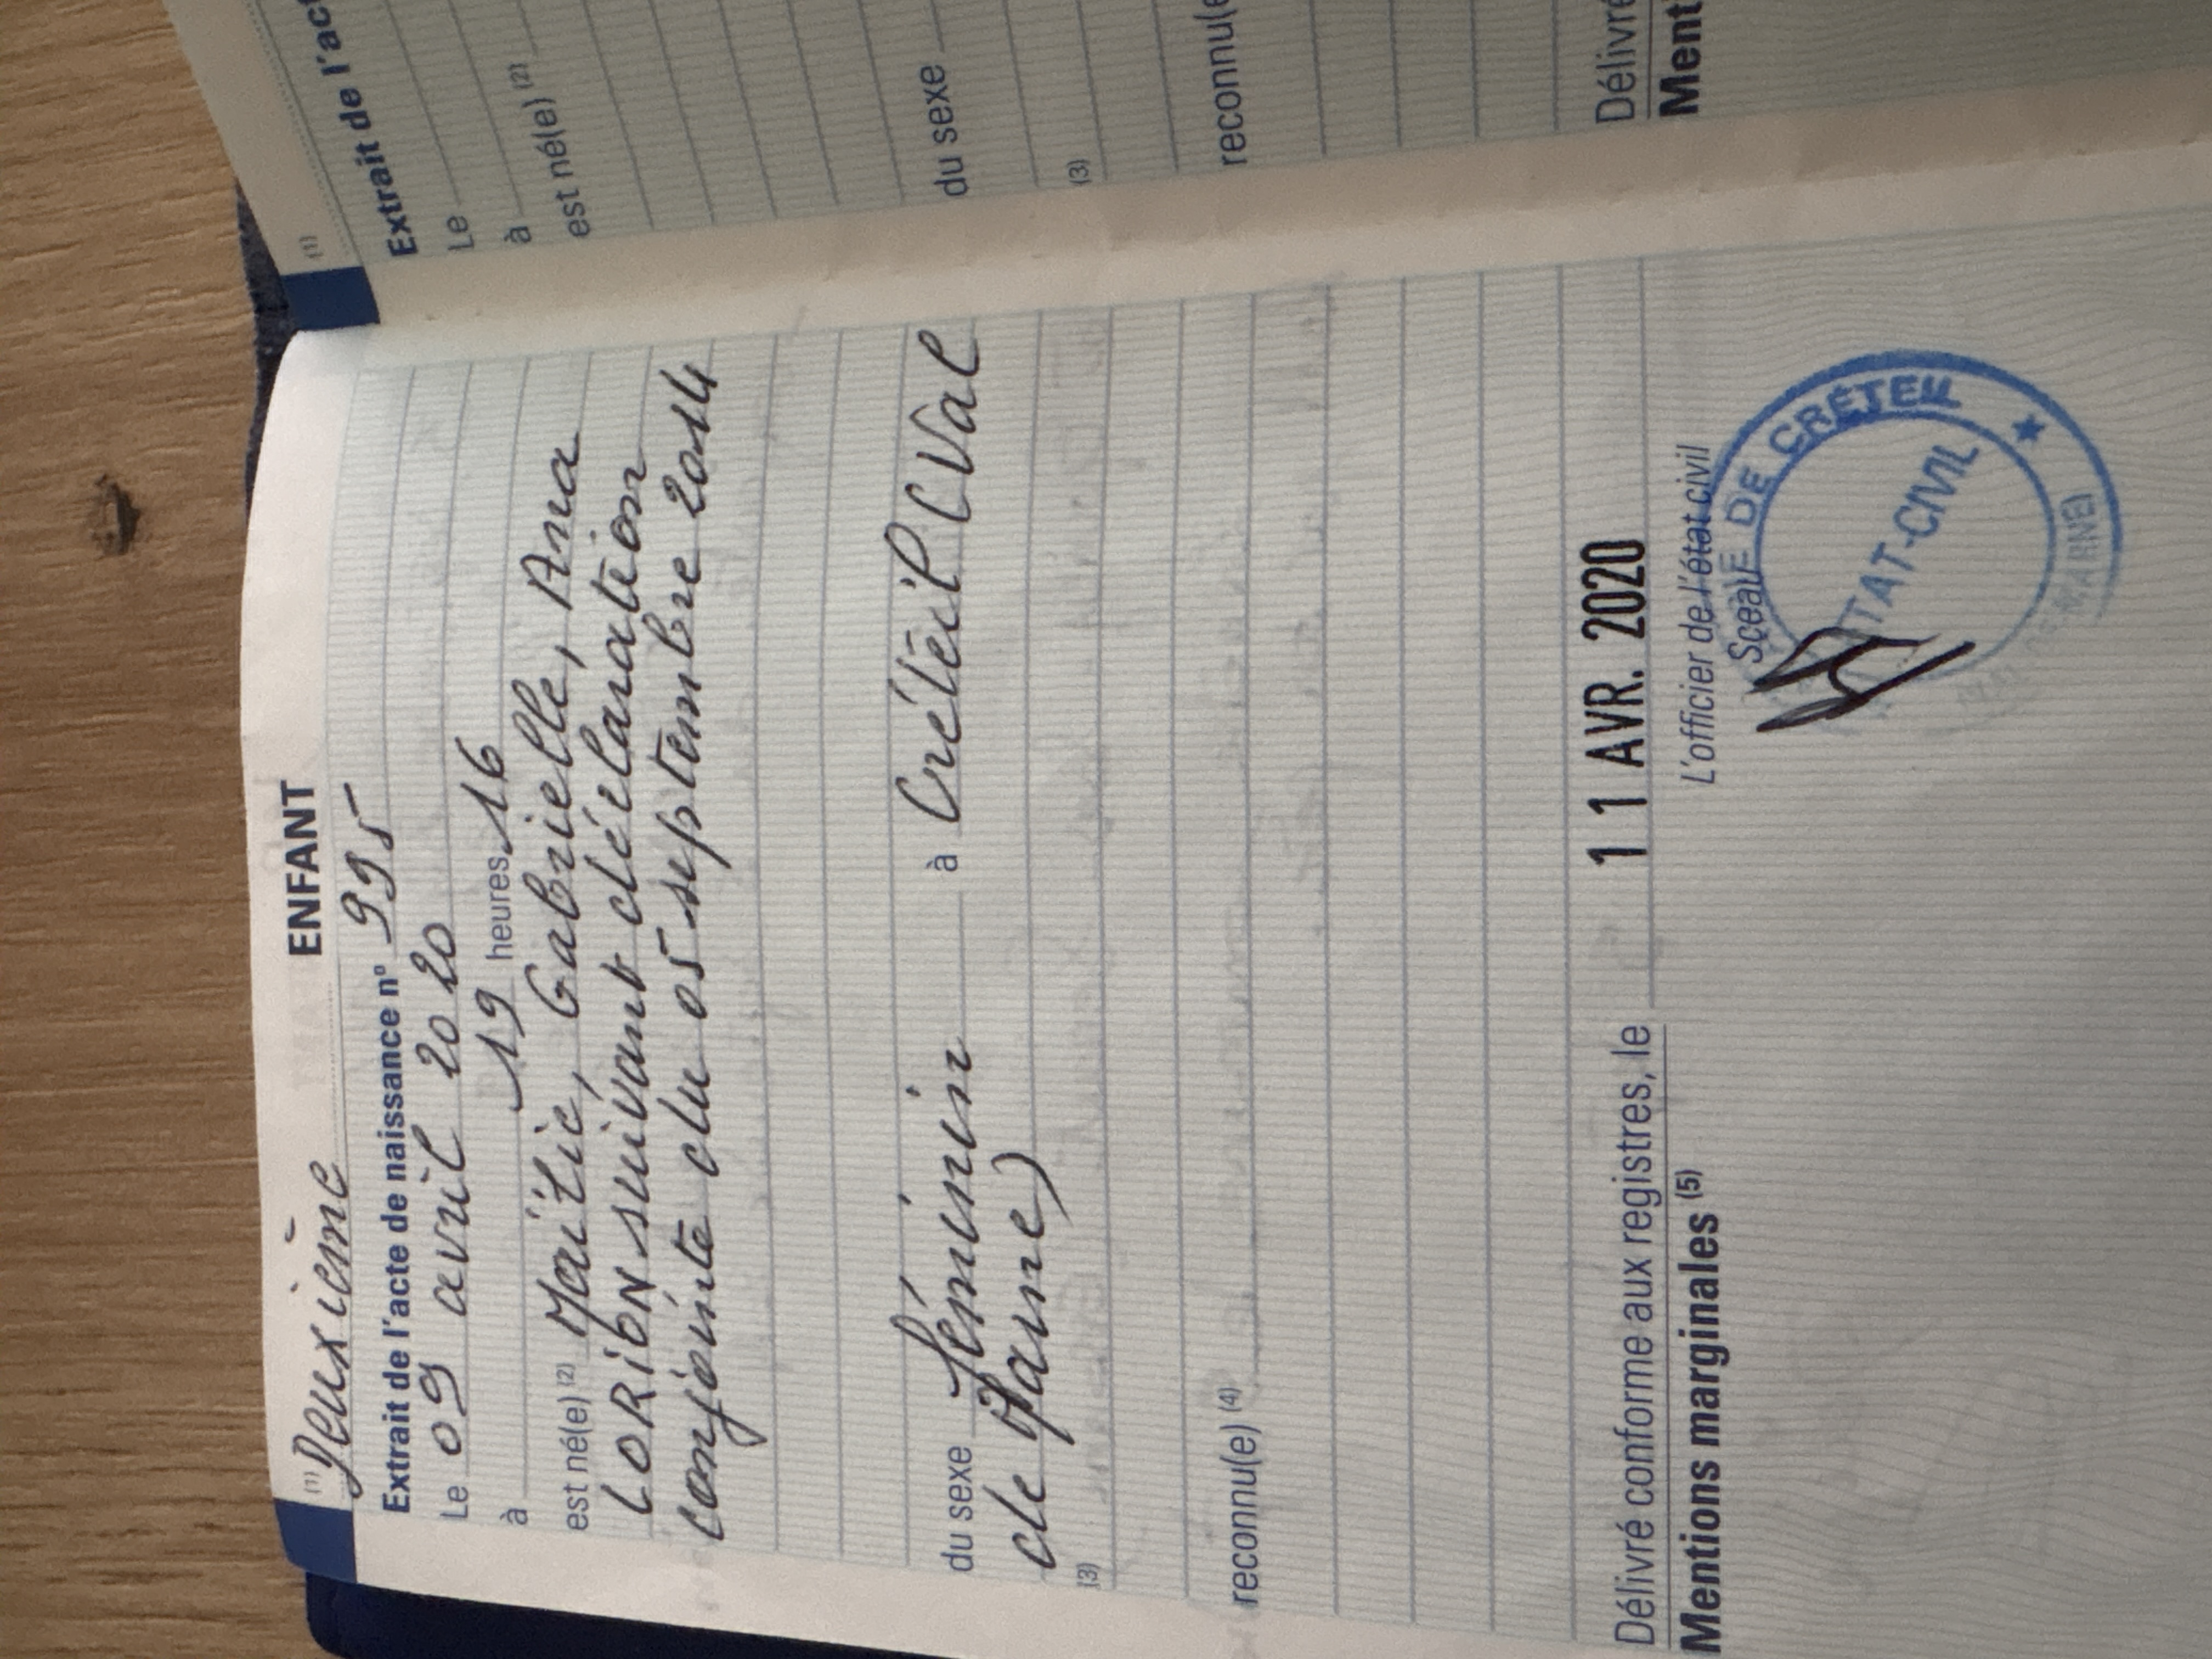 (1) Deuxième ENFANT
Extrait de l'acte de naissance n° 995
Le 09 avril 2020
à 19 heures 16
est né(e) (2) Maïlie, Gabrielle, Ana
LORION suivant déclaration
conjointe du 05 septembre 2014
du sexe féminin à Créteil (Val
de Marne)
(3)
reconnu(e) (4)
Délivré conforme aux registres, le 11 AVR. 2020
L'officier de l'état civil
Sceau
DE CRÉTEIL
TAT-CIVIL
MARNE)
Mentions marginales (5)
(1)
Extrait de l'act
Le
à
est né(e) (2)
du sexe
(3)
reconnu(e
Délivré
Ment